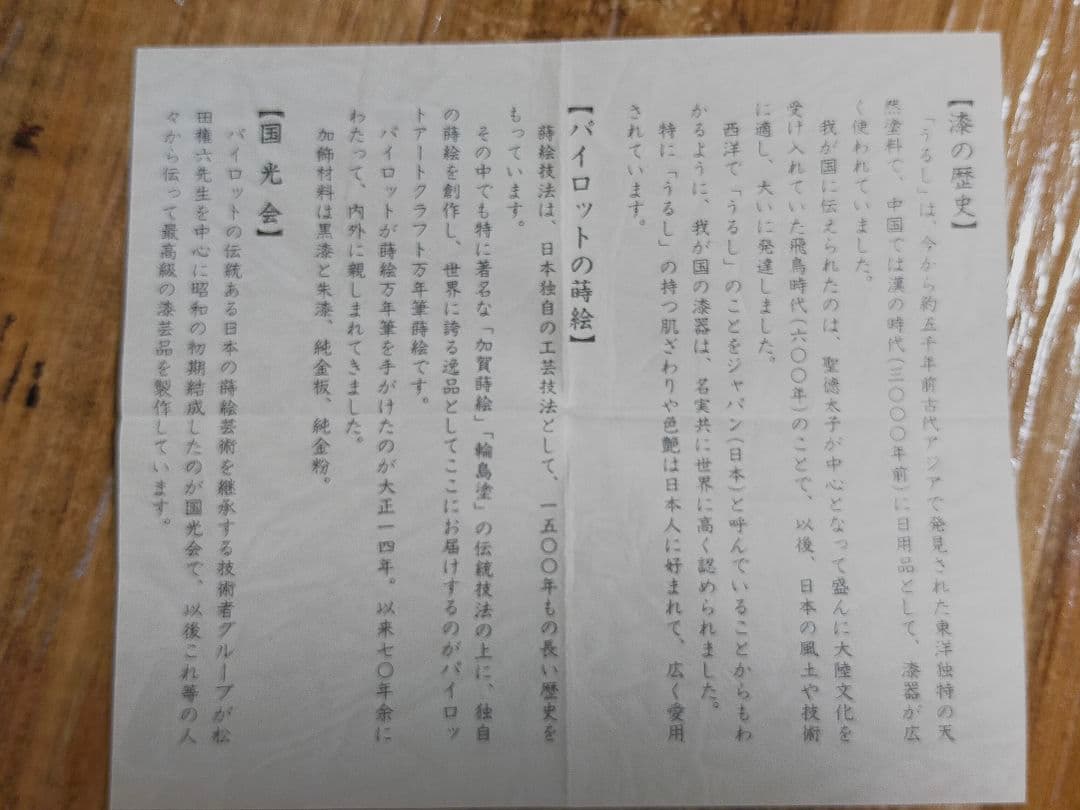 【漆の歴史】
「うるし」は、今から約五千年前古代アジアで発見された東洋独特の天
然塗料で、中国では漢の時代(三〇〇〇年前)に日用品として、漆器が広
く使われていました。
我が国に伝えられたのは、聖徳太子が中心となって盛んに大陸文化を
受け入れていた飛鳥時代(六〇〇年)のことで、以後、日本の風土や技術
に適し、大いに発達しました。
西洋で「うるし」のことをジャパン(日本)と呼んでいることからもわ
かるように、我が国の漆器は、名実共に世界に高く認められました。
特に「うるし」の持つ肌ざわりや色艶は日本人に好まれて、広く愛用
されています。
【パイロットの蒔絵】
蒔絵技法は、日本独自の工芸技法として、一五〇〇年もの長い歴史を
もっています。
その中でも特に著名な「加賀蒔絵」「輪島塗」の伝統技法の上に、独自
の蒔絵を創作し、世界に誇る逸品としてここにお届けするのがパイロッ
トアートクラフト万年筆蒔絵です。
パイロットが蒔絵万年筆を手がけたのが大正一四年。以来七〇年余に
わたって、内外に親しまれてきました。
加飾材料は黒漆と朱漆、純金板、純金粉。
【国光会】
パイロットの伝統ある日本の蒔絵芸術を継承する技術者グループが松
田権六先生を中心に昭和の初期結成したのが国光会で、以後これ等の人
々から伝って最高級の漆芸品を製作しています。